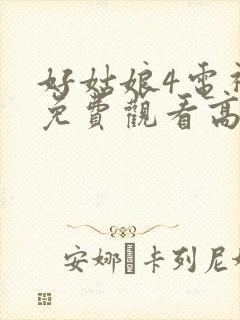 好姑娘4電
免費觀看高
安娜·卡列尼